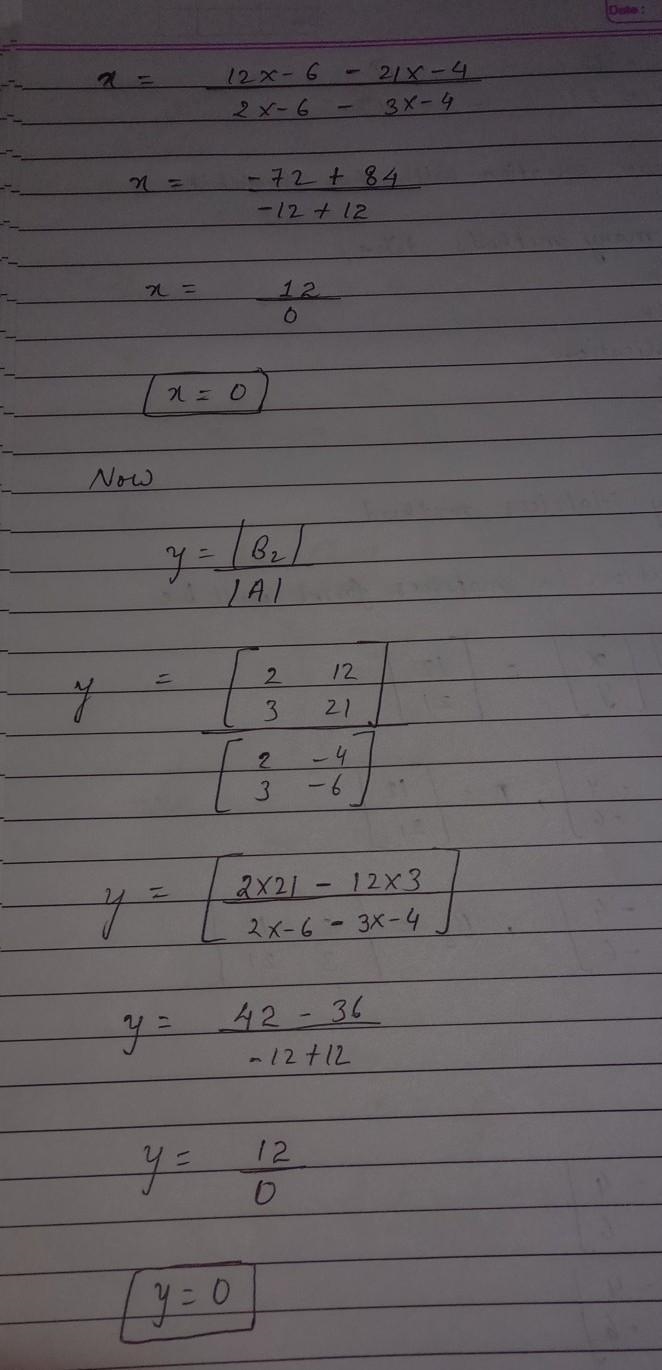 Date:
x = 12x-6 - 21x-4
2x-6 - 3x-4
x = -72 + 84
-12 + 12
x = 12
0
x = 0
Now
y = |B₂|
|A|
y = [2 12
3 21]
[2 -4
3 -6]
y = [2x21 - 12x3
2x-6 - 3x-4]
y = 42 - 36
-12+12
y = 12
0
y = 0